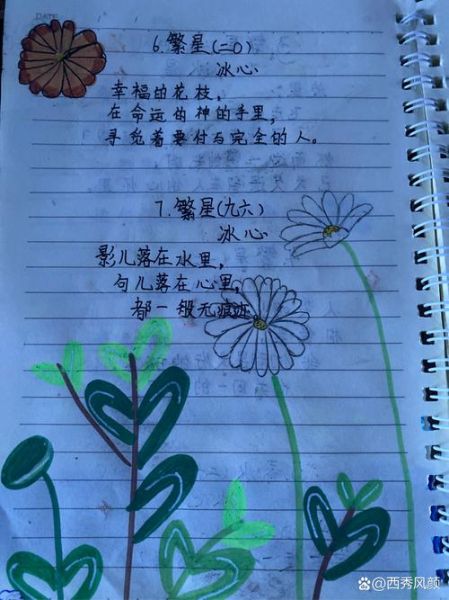 DATE
6.繁星(二0)
冰心
幸福的花枝，
在命运的神的手里，
寻觅着要付与完全的人。
7.繁星(九六)
冰心
影儿落在水里，
句儿落在心里，
都一般无痕迹
@西秀风颜